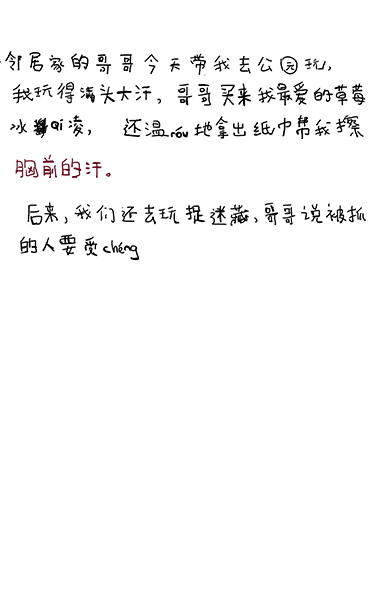 邻居家的哥哥今天带我去公园玩,
我玩得满头大汗,哥哥买来我最爱的草莓
冰qi凌, 还温róu地拿出纸巾帮我擦
胸前的汗。
后来,我们还去玩捉迷藏,哥哥说被抓
的人要受chéng